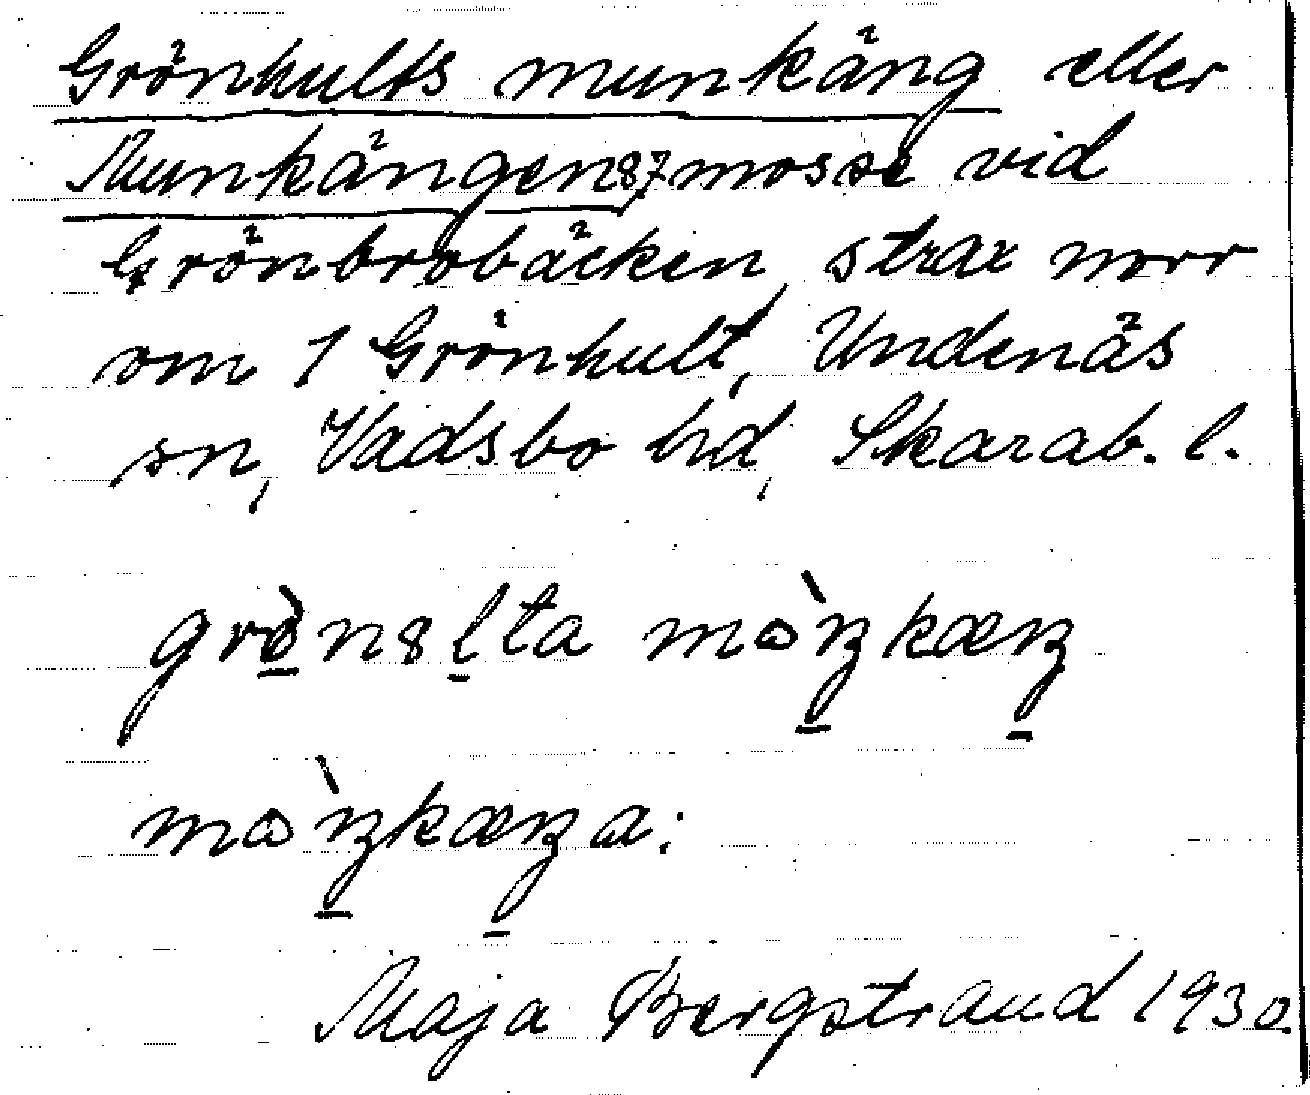 Grönhults munkäng eller
Munkängen 87 mosse vid
Grönbrobäcken, strax norr
om 1 Grönhult, Undenäs
sn, Vadsbo hd, Skarab. l.
mòŋkæŋa:
Maja Bergstrand 1930.